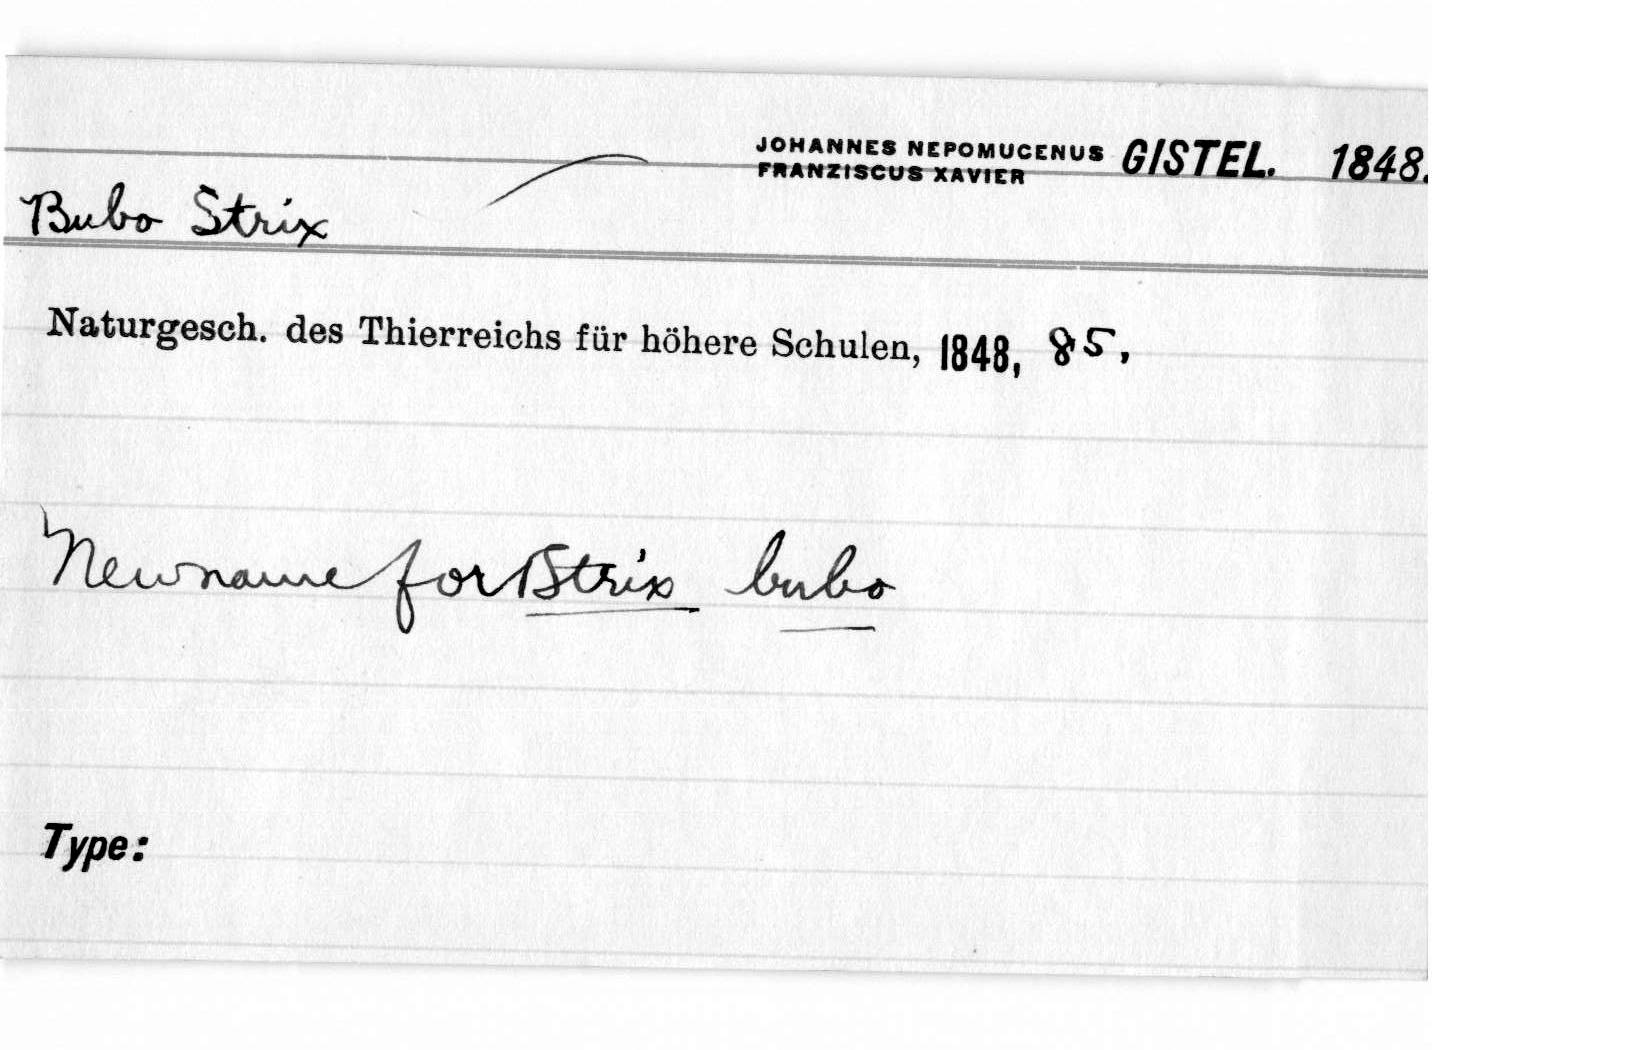 JOHANNES NEPOMUCENUS FRANZISCUS XAVIER GISTEL. 1848.
Bubo Strix
Naturgesch. des Thierreichs für höhere Schulen, 1848, 85.
New name for Strix bubo
Type: